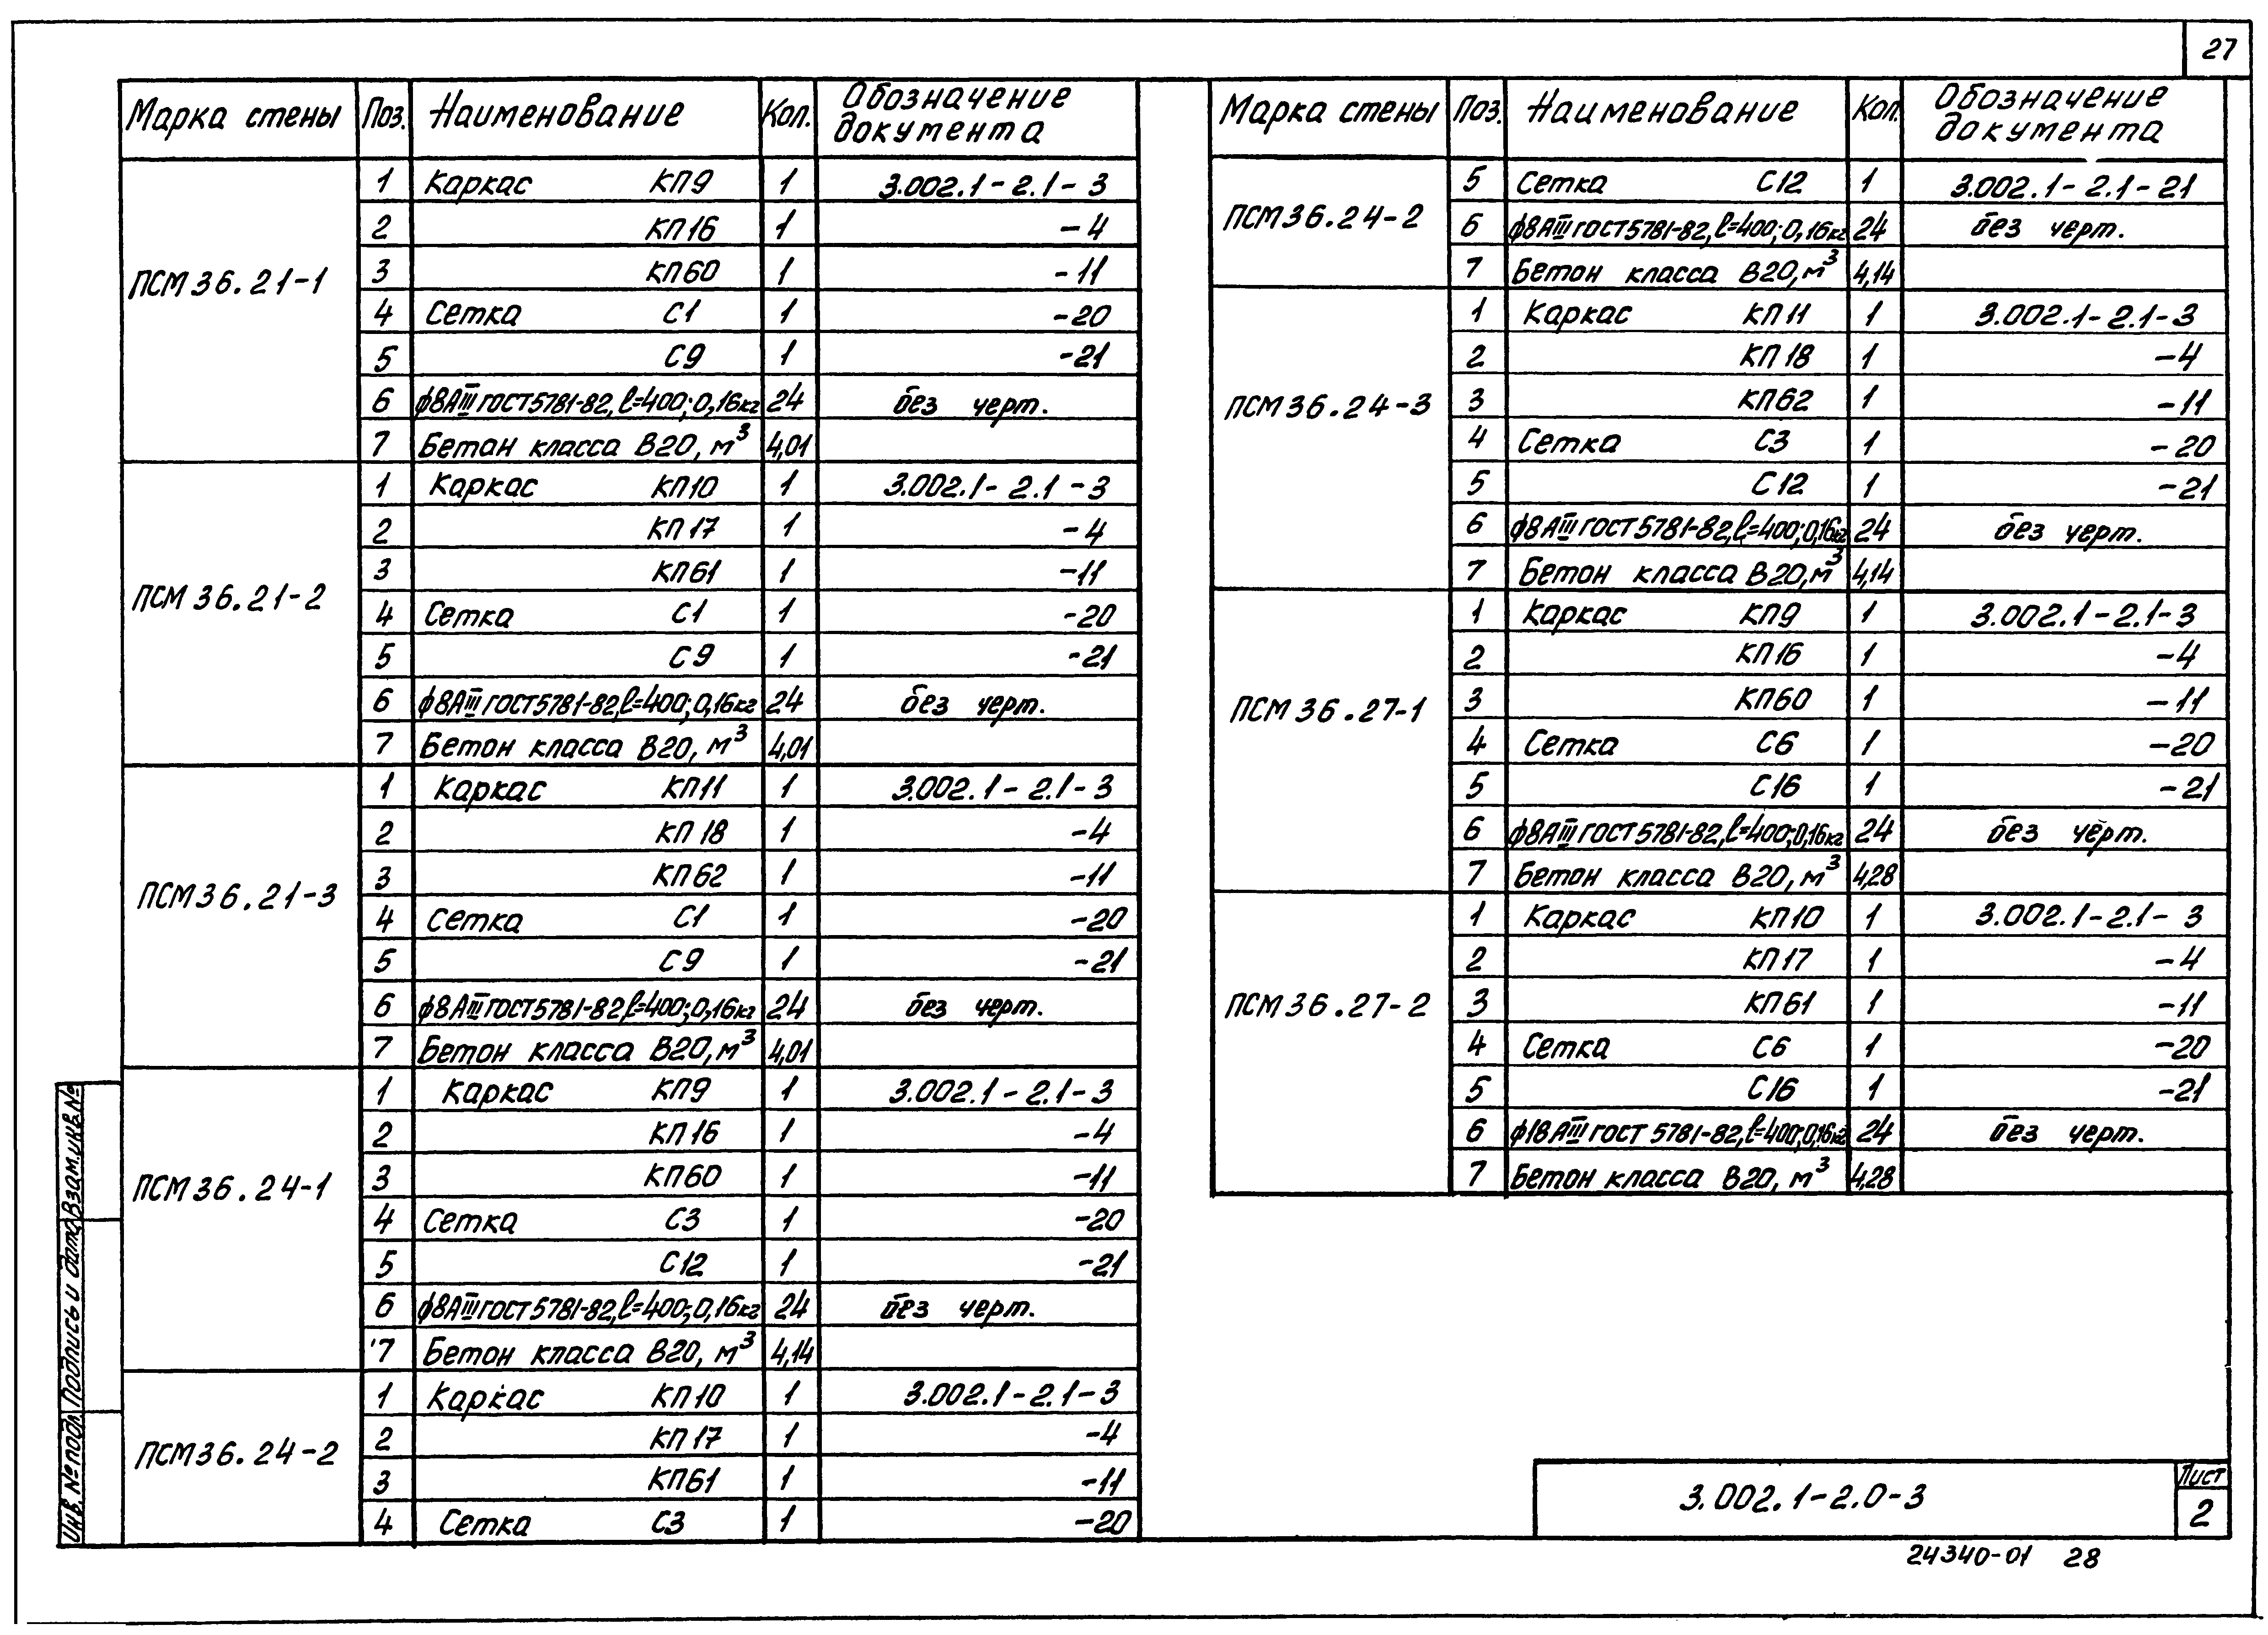 27
Марка стены Поз. Наименование Кол. Обозначение документа
ПСМ 36.21-1
1 Каркас КП9 1 3.002.1-2.1-3
2 КП16 1 -4
3 КП60 1 -11
4 Сетка С1 1 -20
5 С9 1 -21
6 ф8АIII ГОСТ 5781-82, ℓ=400; 0,16кг 24 без черт.
7 Бетон класса В20, м³ 4,01
ПСМ 36.21-2
1 Каркас КП10 1 3.002.1-2.1-3
2 КП17 1 -4
3 КП61 1 -11
4 Сетка С1 1 -20
5 С9 1 -21
6 ф8АIII ГОСТ 5781-82, ℓ=400; 0,16кг 24 без черт.
7 Бетон класса В20, м³ 4,01
ПСМ 36.21-3
1 Каркас КП11 1 3.002.1-2.1-3
2 КП18 1 -4
3 КП62 1 -11
4 Сетка С1 1 -20
5 С9 1 -21
6 ф8АIII ГОСТ 5781-82, ℓ=400; 0,16кг 24 без черт.
7 Бетон класса В20, м³ 4,01
ПСМ 36.24-1
1 Каркас КП9 1 3.002.1-2.1-3
2 КП16 1 -4
3 КП60 1 -11
4 Сетка С3 1 -20
5 С12 1 -21
6 ф8АIII ГОСТ 5781-82, ℓ=400; 0,16кг 24 без черт.
7 Бетон класса В20, м³ 4,14
ПСМ 36.24-2
1 Каркас КП10 1 3.002.1-2.1-3
2 КП17 1 -4
3 КП61 1 -11
4 Сетка С3 1 -20
Марка стены Поз. Наименование Кол. Обозначение документа
ПСМ 36.24-2
5 Сетка С12 1 3.002.1-2.1-21
6 ф8АIII ГОСТ 5781-82, ℓ=400; 0,16кг 24 без черт.
7 Бетон класса В20, м³ 4,14
ПСМ 36.24-3
1 Каркас КП11 1 3.002.1-2.1-3
2 КП18 1 -4
3 КП62 1 -11
4 Сетка С3 1 -20
5 С12 1 -21
6 ф8АIII ГОСТ 5781-82, ℓ=400; 0,16кг 24 без черт.
7 Бетон класса В20, м³ 4,14
ПСМ 36.27-1
1 Каркас КП9 1 3.002.1-2.1-3
2 КП16 1 -4
3 КП60 1 -11
4 Сетка С6 1 -20
5 С16 1 -21
6 ф8АIII ГОСТ 5781-82, ℓ=400; 0,16кг 24 без черт.
7 Бетон класса В20, м³ 4,28
ПСМ 36.27-2
1 Каркас КП10 1 3.002.1-2.1-3
2 КП17 1 -4
3 КП61 1 -11
4 Сетка С6 1 -20
5 С16 1 -21
6 ф18АIII ГОСТ 5781-82, ℓ=400; 0,16кг 24 без черт.
7 Бетон класса В20, м³ 4,28
Инв. № подл. Подпись и дата Взам. инв. №
3.002.1-2.0-3
Лист
2
24340-01 28